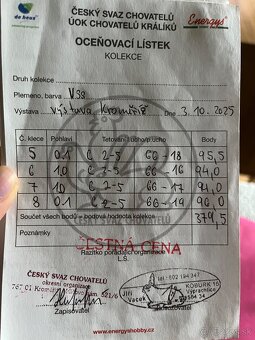 de heus
ČESKÝ SVAZ CHOVATELŮ
ÚOK CHOVATELŮ KRÁLÍKŮ
Energys
OCEŇOVACÍ LÍSTEK
KOLEKCE
Druh kolekce
Plemeno, barva Vss
Výstava výstava Kroměříž Dne 3.10.2025
Č. klece Pohlaví Tetování ľ.ucho/p.ucho Body
5 0.1 C 2-5 66-18 95,5
6 1.0 C 3-5 66-16 94,0
7 1.0 C 2-5 66-17 94,0
8 0.1 C 2-5 66-19 96,0
Součet všech bodů = bodová hodnota kolekce 379,5
Poznámky
ČESTNÁ CENA
Razítko pořádající organizace
L.S.
ČESKÝ SVAZ CHOVATELŮ
okresní organizace
767 01 Kroměříž
Zapisovatel
JIŘÍ
Vacek
Posuzovatel
www.energyshobby.cz